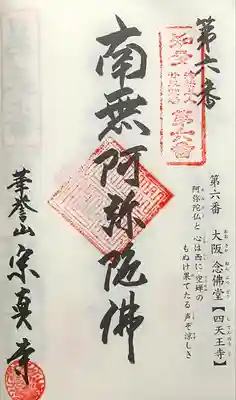 第六番
知多
第六番
第六番 大阪 念佛堂【四天王寺】
阿弥陀仏と 心は西に 空蝉の
もぬけ果てたる 声ぞ涼しき
南無阿弥陀佛
華誉山 宗真寺